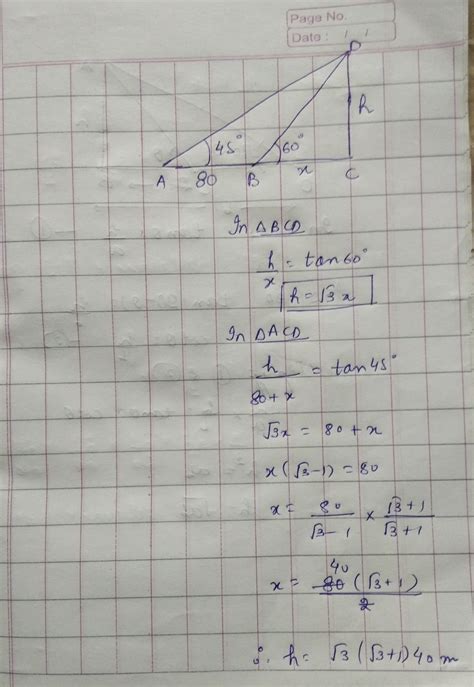 Page No.
Date : / /
D
h
45° 60°
A 80 B x C
In △BCD
h/x = tan60°
h = √3 x
In △ACD
h/80+x = tan45°
√3x = 80+x
x(√3-1) = 80
x = 80/√3-1 × √3+1/√3+1
40
x = 80(√3+1)/2
∴ h = √3(√3+1)40 m